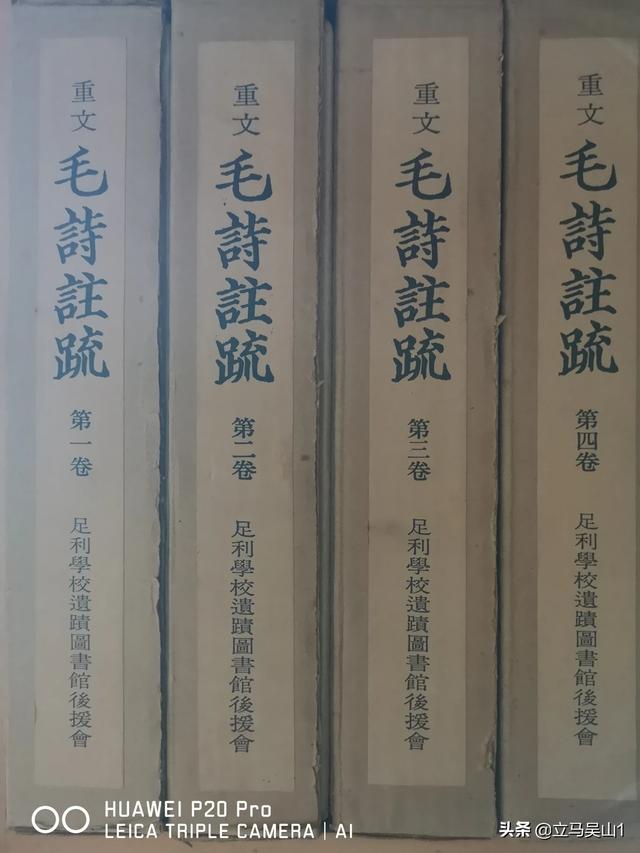 重文
毛詩註疏
第一卷
足利學校遺蹟圖書館後援會
重文
毛詩註疏
第二卷
足利學校遺蹟圖書館後援會
重文
毛詩註疏
第三卷
足利學校遺蹟圖書館後援會
重文
毛詩註疏
第四卷
足利學校遺蹟圖書館後援會
HUAWEI P20 Pro
LEICA TRIPLE CAMERA | AI
头条 @立马吴山1